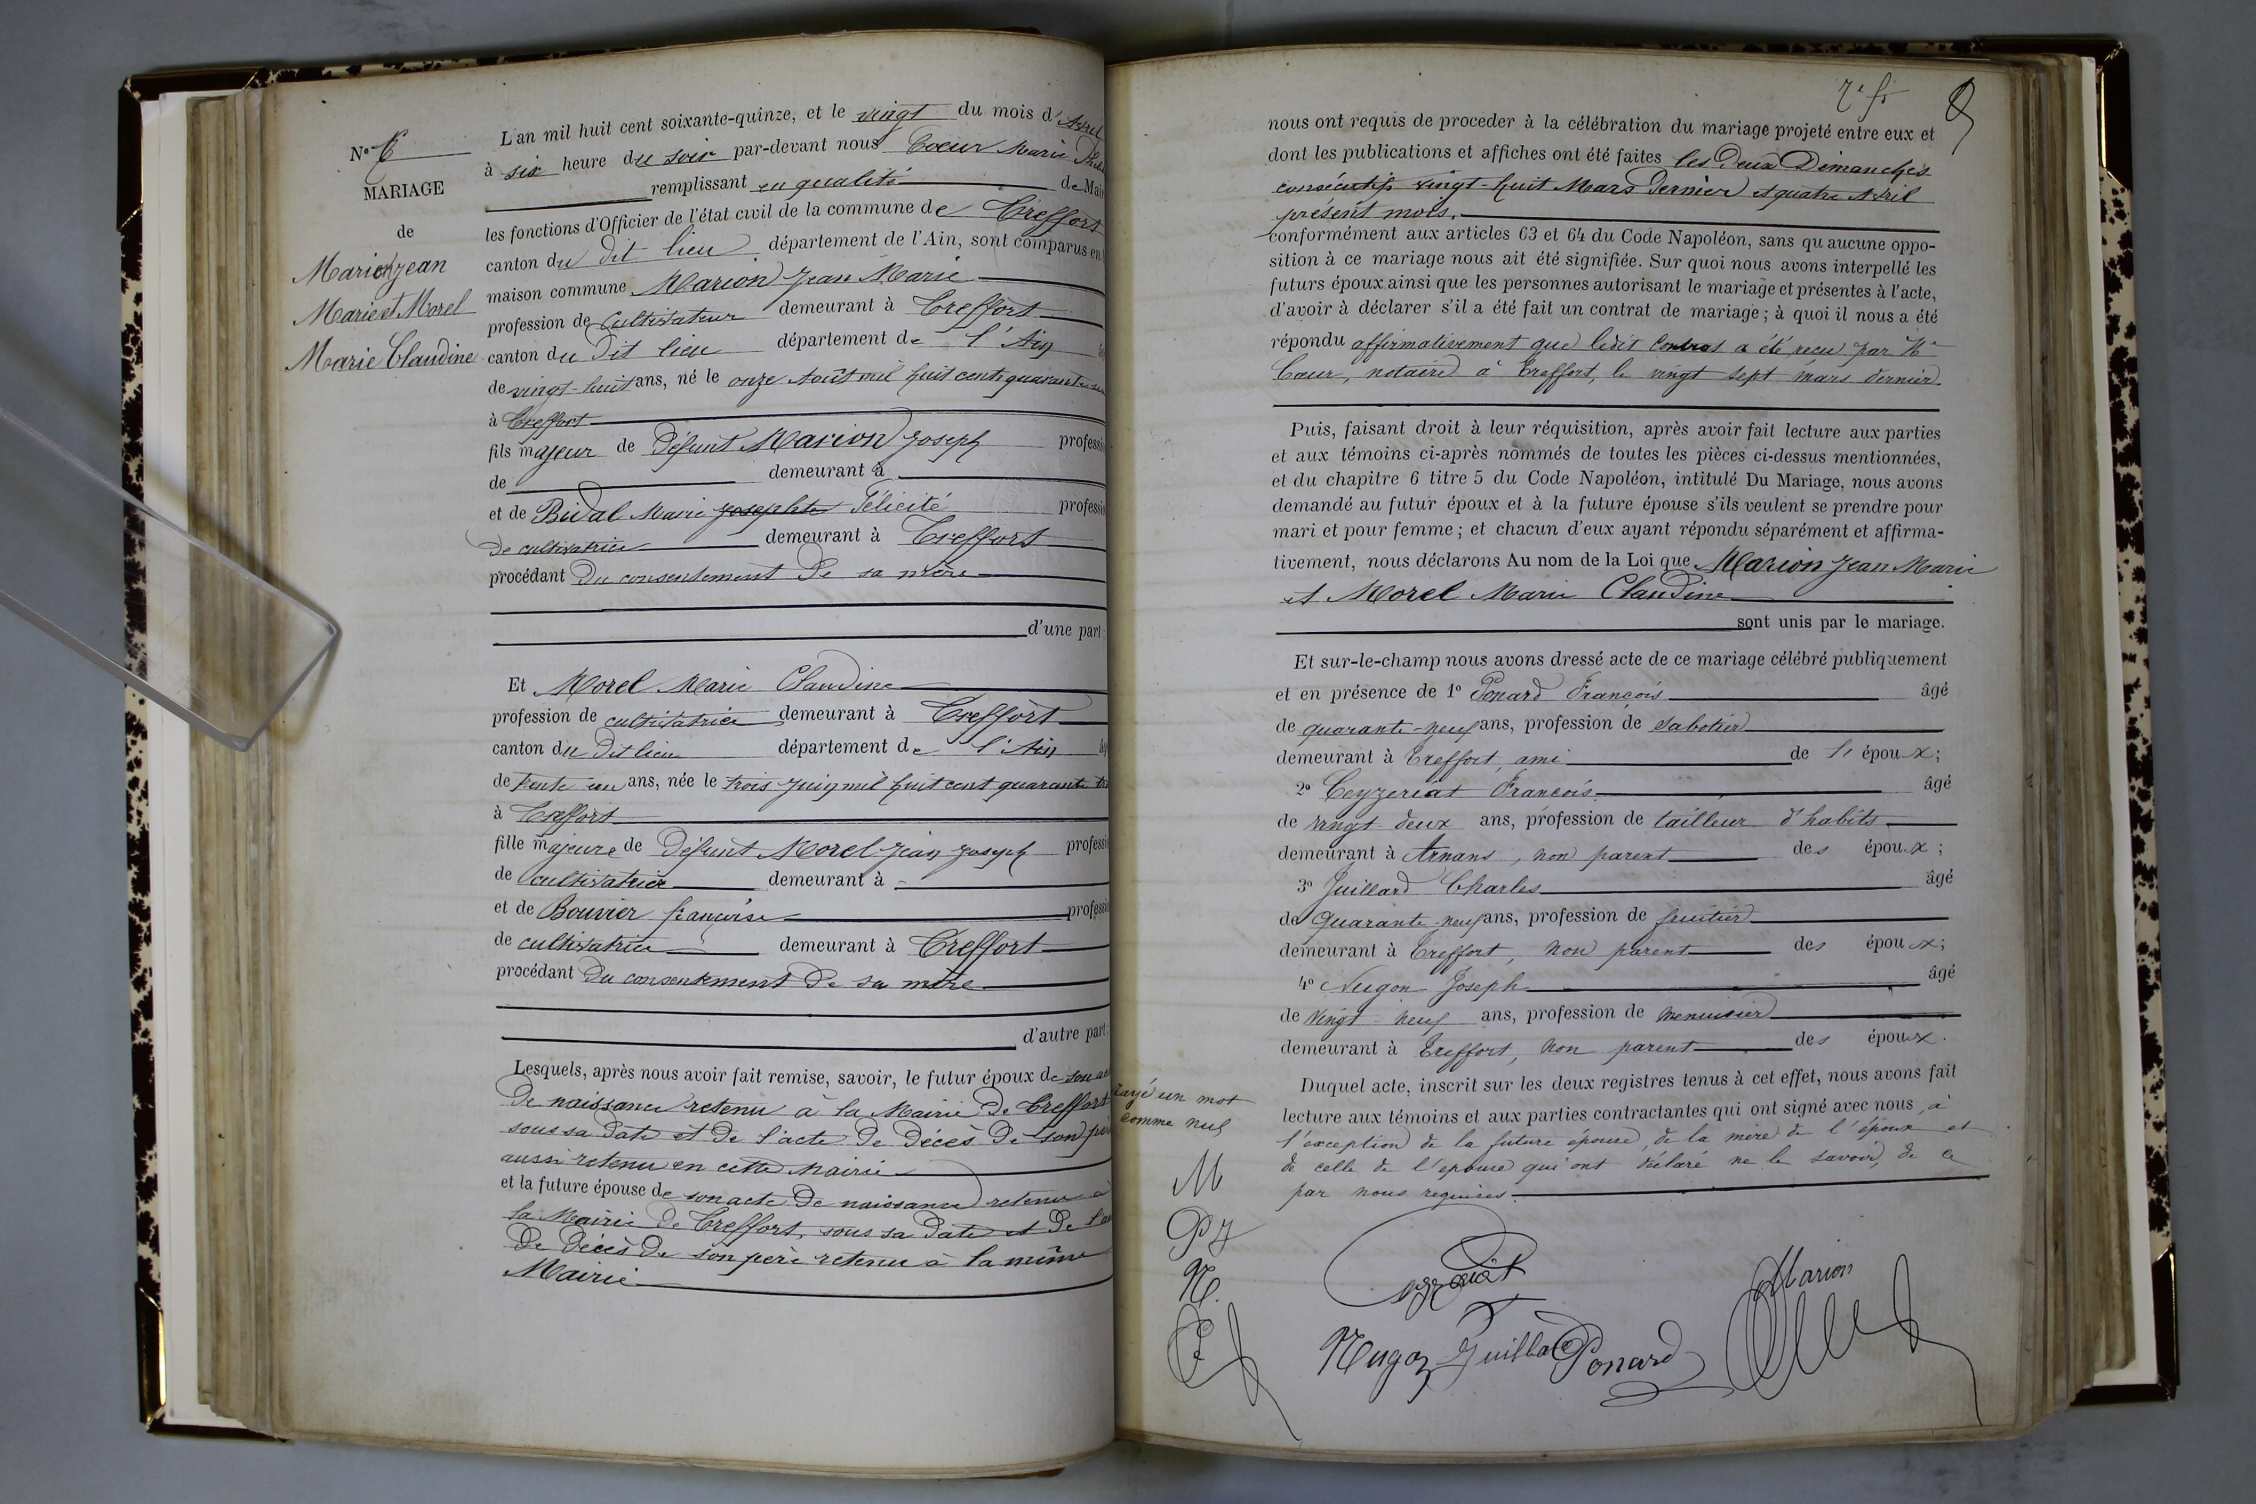 Nº 6
MARIAGE
de
Marion Jean
Marie et Morel
Marie Claudine
L'an mil huit cent soixante-quinze, et le vingt du mois d'Avril
à six heure du soir par-devant nous Coeur Marie
remplissant en qualité de Mai
les fonctions d'Officier de l'état civil de la commune de Treffort
canton du dit lieu département de l'Ain, sont comparus en
maison commune Marion Jean Marie
profession de cultivateur demeurant à Treffort
canton du dit lieu département de l'Ain
de vingt-huit ans, né le onze Août mil huit cent quarante
à Treffort
fils majeur de défunt Marion Joseph professi
de demeurant à
et de Bidal Marie Josephte Félicité professi
de cultivatrice demeurant à Treffort
procédant du consentement de sa mère
d'une part
Et Morel Marie Claudine
profession de cultivatrice demeurant à Treffort
canton du dit lieu département de l'Ain
de trente un ans, née le trois Juin mil huit cent quarante
à Treffort
fille majeure de défunt Morel Jean Joseph professi
de cultivatrice demeurant à
et de Bouvier françoise professi
de cultivatrice demeurant à Treffort
procédant du consentement de sa mère
d'autre part
Lesquels, après nous avoir fait remise, savoir, le futur époux de son ac
de naissance retenu à la Mairie de Treffort
sous sa date et de l'acte de décès de son père
aussi retenu en cette Mairie
et la future épouse de son acte de naissance retenu à
la Mairie de Treffort, sous sa date et de l'ac
de décès de son père retenu à la même
Mairie
nous ont requis de proceder à la célébration du mariage projeté entre eux et
dont les publications et affiches ont été faites les deux Dimanches
consécutifs vingt-huit Mars dernier et quatre Avril
présent mois.
conformément aux articles 63 et 64 du Code Napoléon, sans qu'aucune oppo-
sition à ce mariage nous ait été signifiée. Sur quoi nous avons interpellé les
futurs époux ainsi que les personnes autorisant le mariage et présentes à l'acte,
d'avoir à déclarer s'il a été fait un contrat de mariage; à quoi il nous a été
répondu affirmativement que ledit Contrat a été reçu par Me
Cœur, notaire à Treffort, le vingt sept mars dernier.
Puis, faisant droit à leur réquisition, après avoir fait lecture aux parties
et aux témoins ci-après nommés de toutes les pièces ci-dessus mentionnées,
et du chapitre 6 titre 5 du Code Napoléon, intitulé Du Mariage, nous avons
demandé au futur époux et à la future épouse s'ils veulent se prendre pour
mari et pour femme; et chacun d'eux ayant répondu séparément et affirma-
tivement, nous déclarons Au nom de la Loi que Marion Jean Marie
et Morel Marie Claudine
sont unis par le mariage.
Et sur-le-champ nous avons dressé acte de ce mariage célébré publiquement
et en présence de 1º Ponard François âgé
de quarante-neuf ans, profession de sabotier
demeurant à Treffort, ami de l' époux;
2º Ceyzeriat François âgé
de vingt deux ans, profession de tailleur d'habits
demeurant à Arnans, non parent des époux;
3º Juillard Charles âgé
de quarante-neuf ans, profession de fruitier
demeurant à Treffort, non parent des époux;
4º Nugon Joseph âgé
de vingt-neuf ans, profession de menuisier
demeurant à Treffort, non parent des époux.
Duquel acte, inscrit sur les deux registres tenus à cet effet, nous avons fait
lecture aux témoins et aux parties contractantes qui ont signé avec nous, à
l'exception de la future épouse, de la mère de l'époux et
de celle de l'épouse qui ont déclaré ne le savoir, de ce
par nous requises.
rayé un mot
comme nul
M
P J
N.
C
Marion
Nugon Juillard Ponard